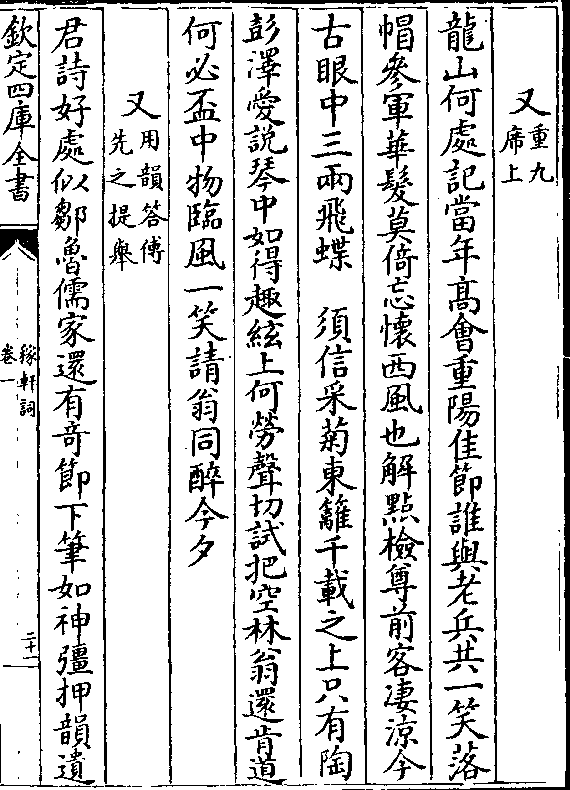 又重九席上
龍山何處記當年髙會重陽佳節誰與老兵共一笑落
帽參軍華髮莫倚忘懷西風也解點檢尊前客凄涼今
古眼中三兩飛蝶　須信采菊東籬千載之上只有陶
彭澤愛說琴中如得趣絃上何勞聲切試把空林翁還肯道
何必盃中物臨風一笑請翁同醉今夕
又用韻答傅先之提舉
君詩好處似鄒魯儒家還有奇節下筆如神彊押韻遺
欽定四庫全書
稼軒詞
卷一
二十一